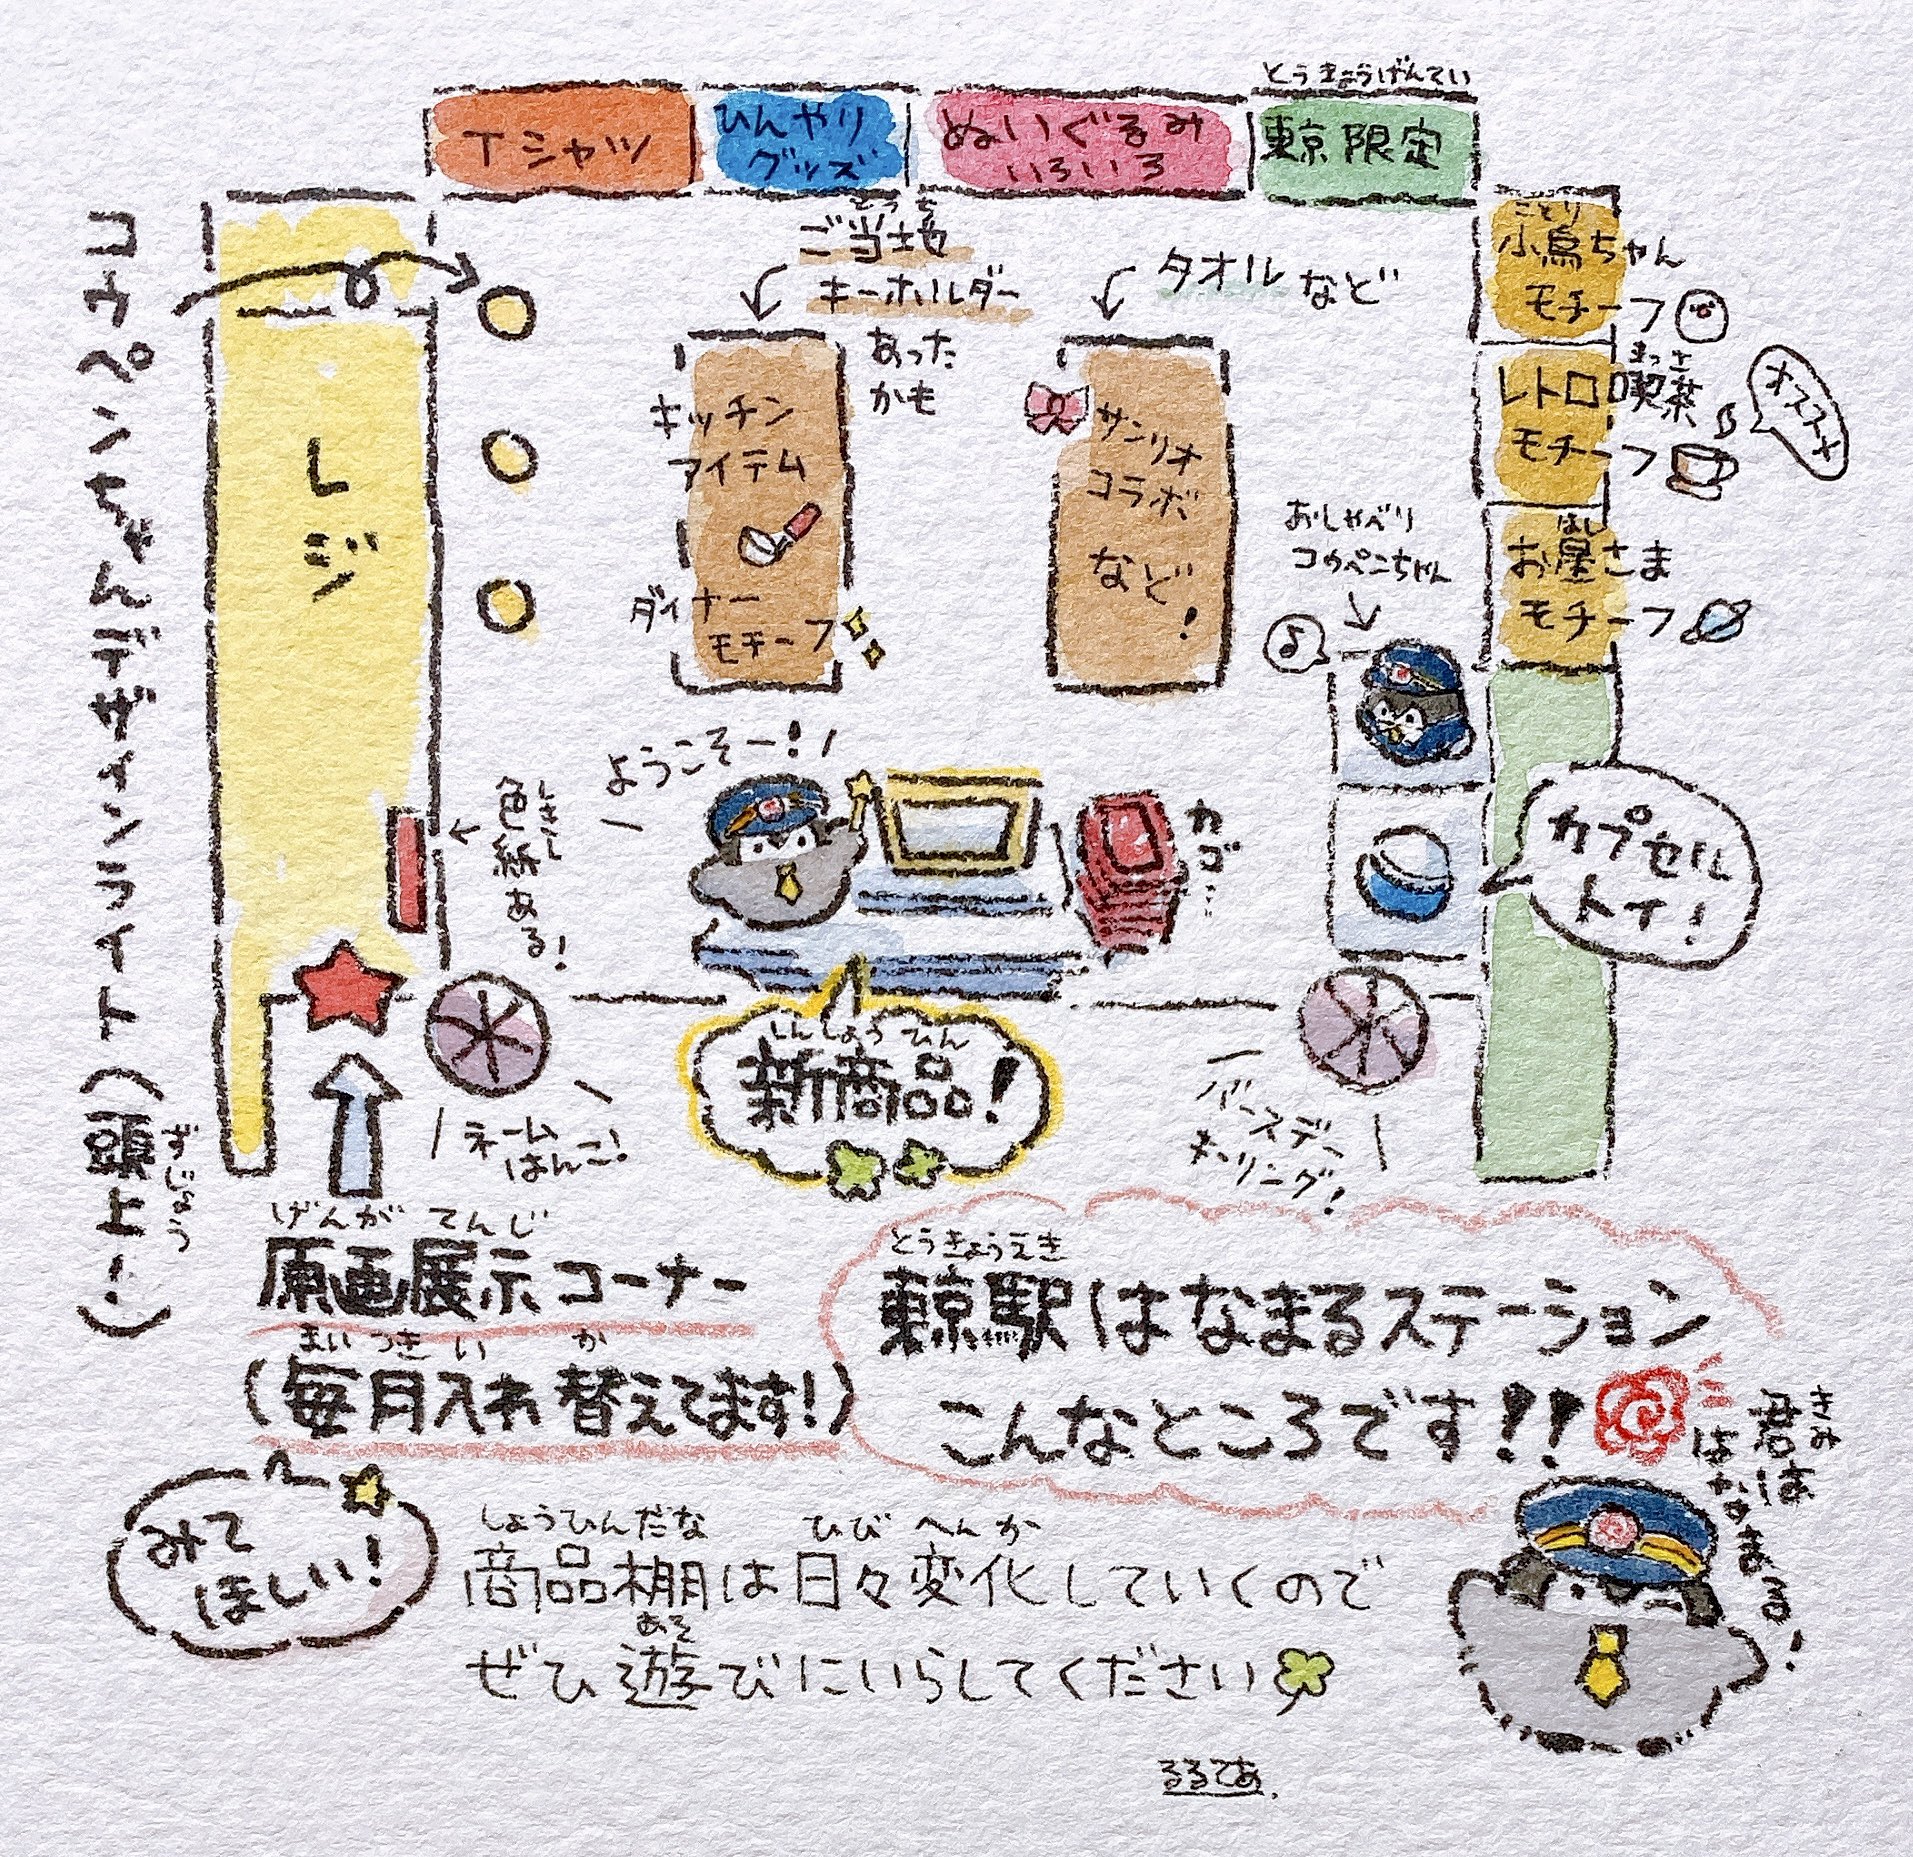 とうきょうげんてい
Tシャツ
ひんやり
グッズ
ぬいぐるみ
いろいろ
東京限定
とうち
ご当地
キーホルダー
あった
かも
タオルなど
ことり
小鳥ちゃん
モチーフ
きっさ
レトロ喫茶
モチーフ
オススメ
ほし
お星さま
モチーフ
コウペンちゃんデザインライト(頭上!)
ずじょう
レジ
キッチン
アイテム
ダイナー
モチーフ
サンリオ
コラボ
など!
おしゃべり
コウペンちゃん
♪
ようこそー!
しきし
色紙ある!
カゴ…
カプセル
トイ!
しんしょうひん
新商品!
ネーム
はんこ!
バースデー
キーリング!
げんが てんじ
原画展示コーナー
まいつきい か
(毎月入れ替えてます!)
とうきょうえき
東京駅はなまるステーション
こんなところです!!
きみ
君は
はなまる!
みて
ほしい!
しょうひんだな ひび へんか
商品棚は日々変化していくので
あそ
ぜひ遊びにいらしてください
るるてあ.